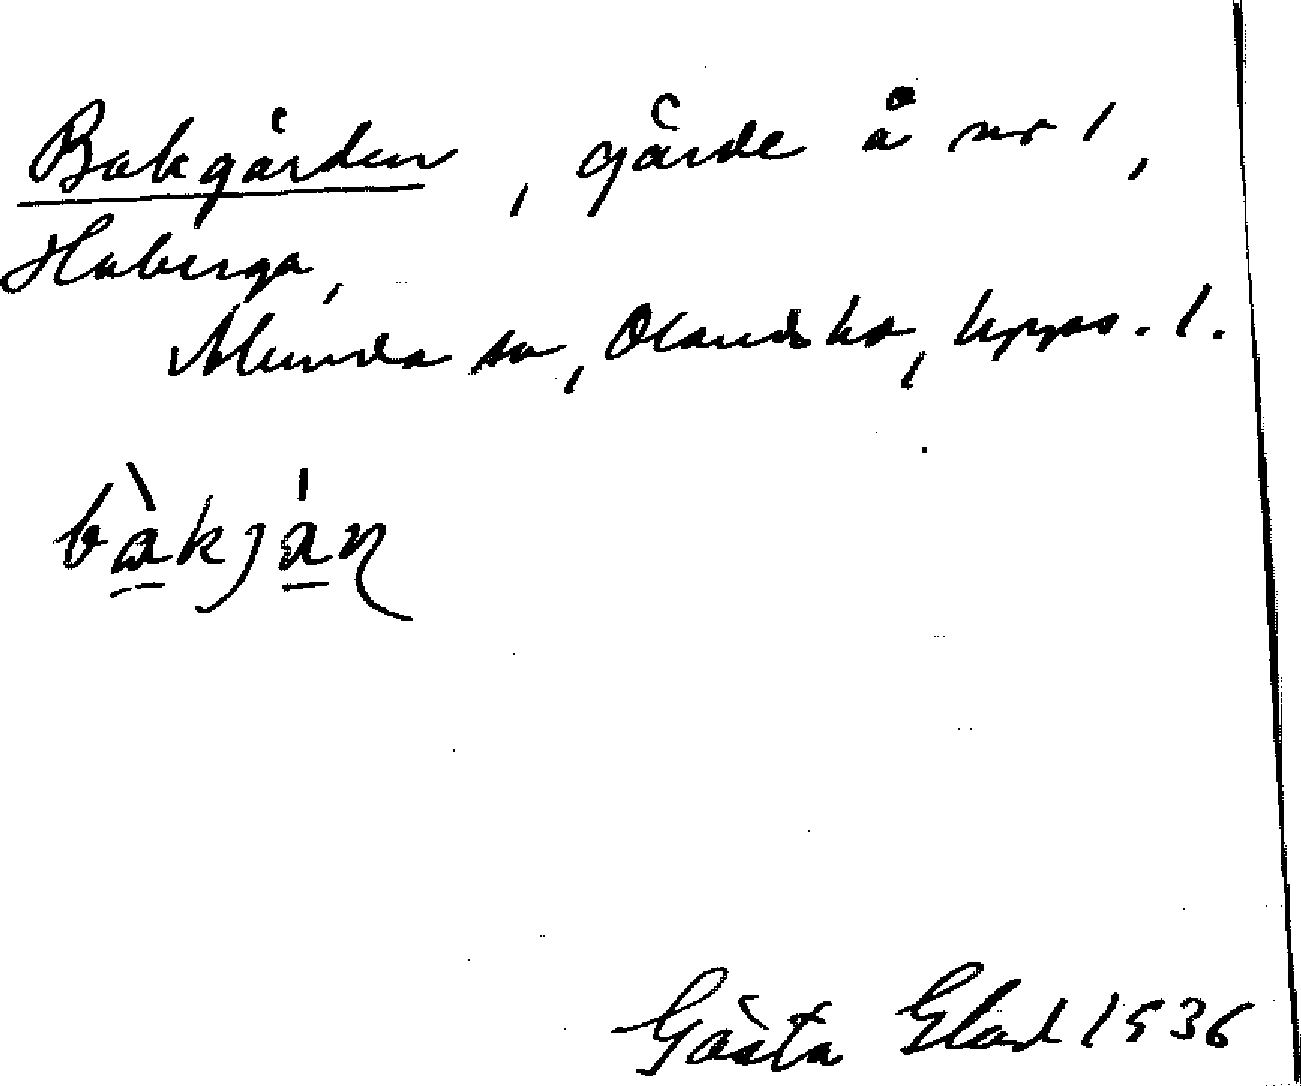 Bakgården, gärde å nr 1,
Haberga,
Alunda sn, Olands hd, Upps. l.
bàkján
Gösta Elad 1936